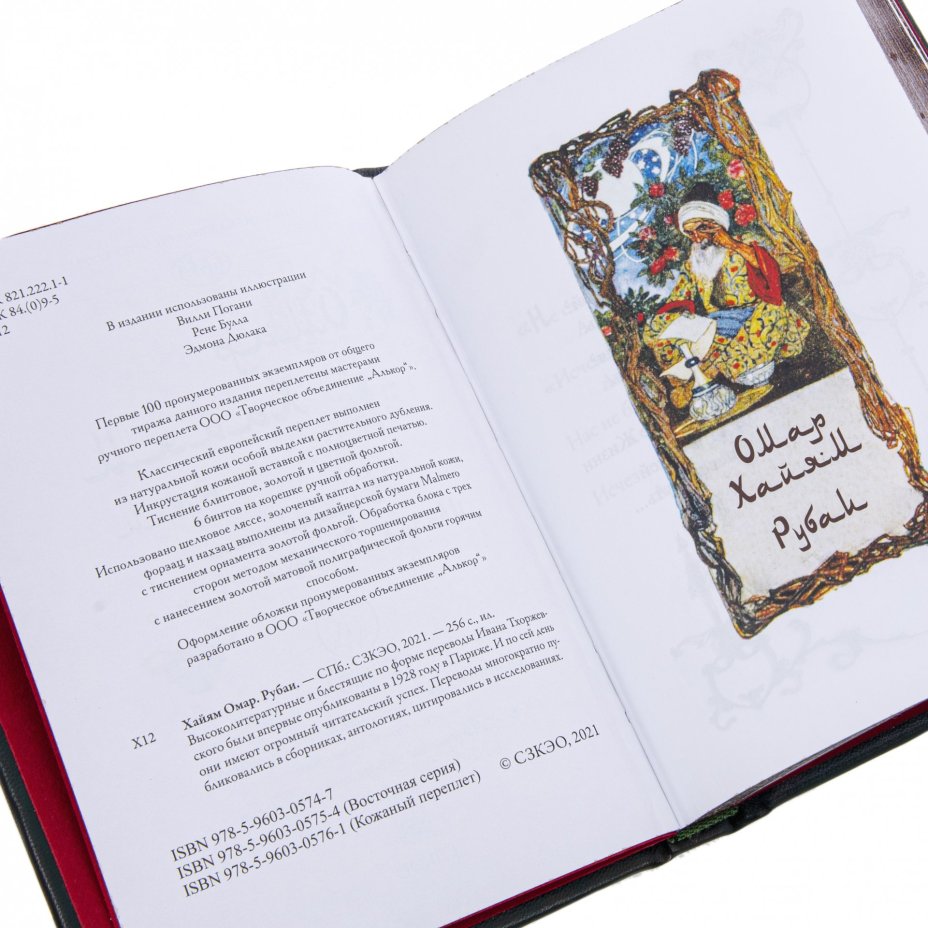 821.222.1-1
84.(0)9-5
12
В издании использованы иллюстрации
Вилли Погани
Рене Булла
Эдмона Дюлака
Первые 100 пронумерованных экземпляров от общего
тиража данного издания переплетены мастерами
ручного переплета ООО «Творческое объединение „Алькор“».
Классический европейский переплет выполнен
из натуральной кожи особой выделки растительного дубления.
Инкрустация кожаной вставкой с полноцветной печатью.
Тиснение блинтовое, золотой и цветной фольгой.
6 бинтов на корешке ручной обработки.
Использовано шелковое ляссе, золоченый каптал из натуральной кожи,
форзац и нахзац выполнены из дизайнерской бумаги Malmero
с тиснением орнамента золотой фольгой. Обработка блока с трех
сторон методом механического торшенирования
с нанесением золотой матовой полиграфической фольги горячим
способом.
Оформление обложки пронумерованных экземпляров
разработано в ООО «Творческое объединение „Алькор“»
Хайям Омар. Рубаи. — СПб.: СЗКЭО, 2021. — 256 с., ил.
Х12 Высоколитературные и блестящие по форме переводы Ивана Тхоржев-
ского были впервые опубликованы в 1928 году в Париже. И по сей день
они имеют огромный читательский успех. Переводы многократно пу-
бликовались в сборниках, антологиях, цитировались в исследованиях.
© СЗКЭО, 2021
ISBN 978-5-9603-0574-7
ISBN 978-5-9603-0575-4 (Восточная серия)
ISBN 978-5-9603-0576-1 (Кожаный переплет)
Омар
Хайям
Рубаи